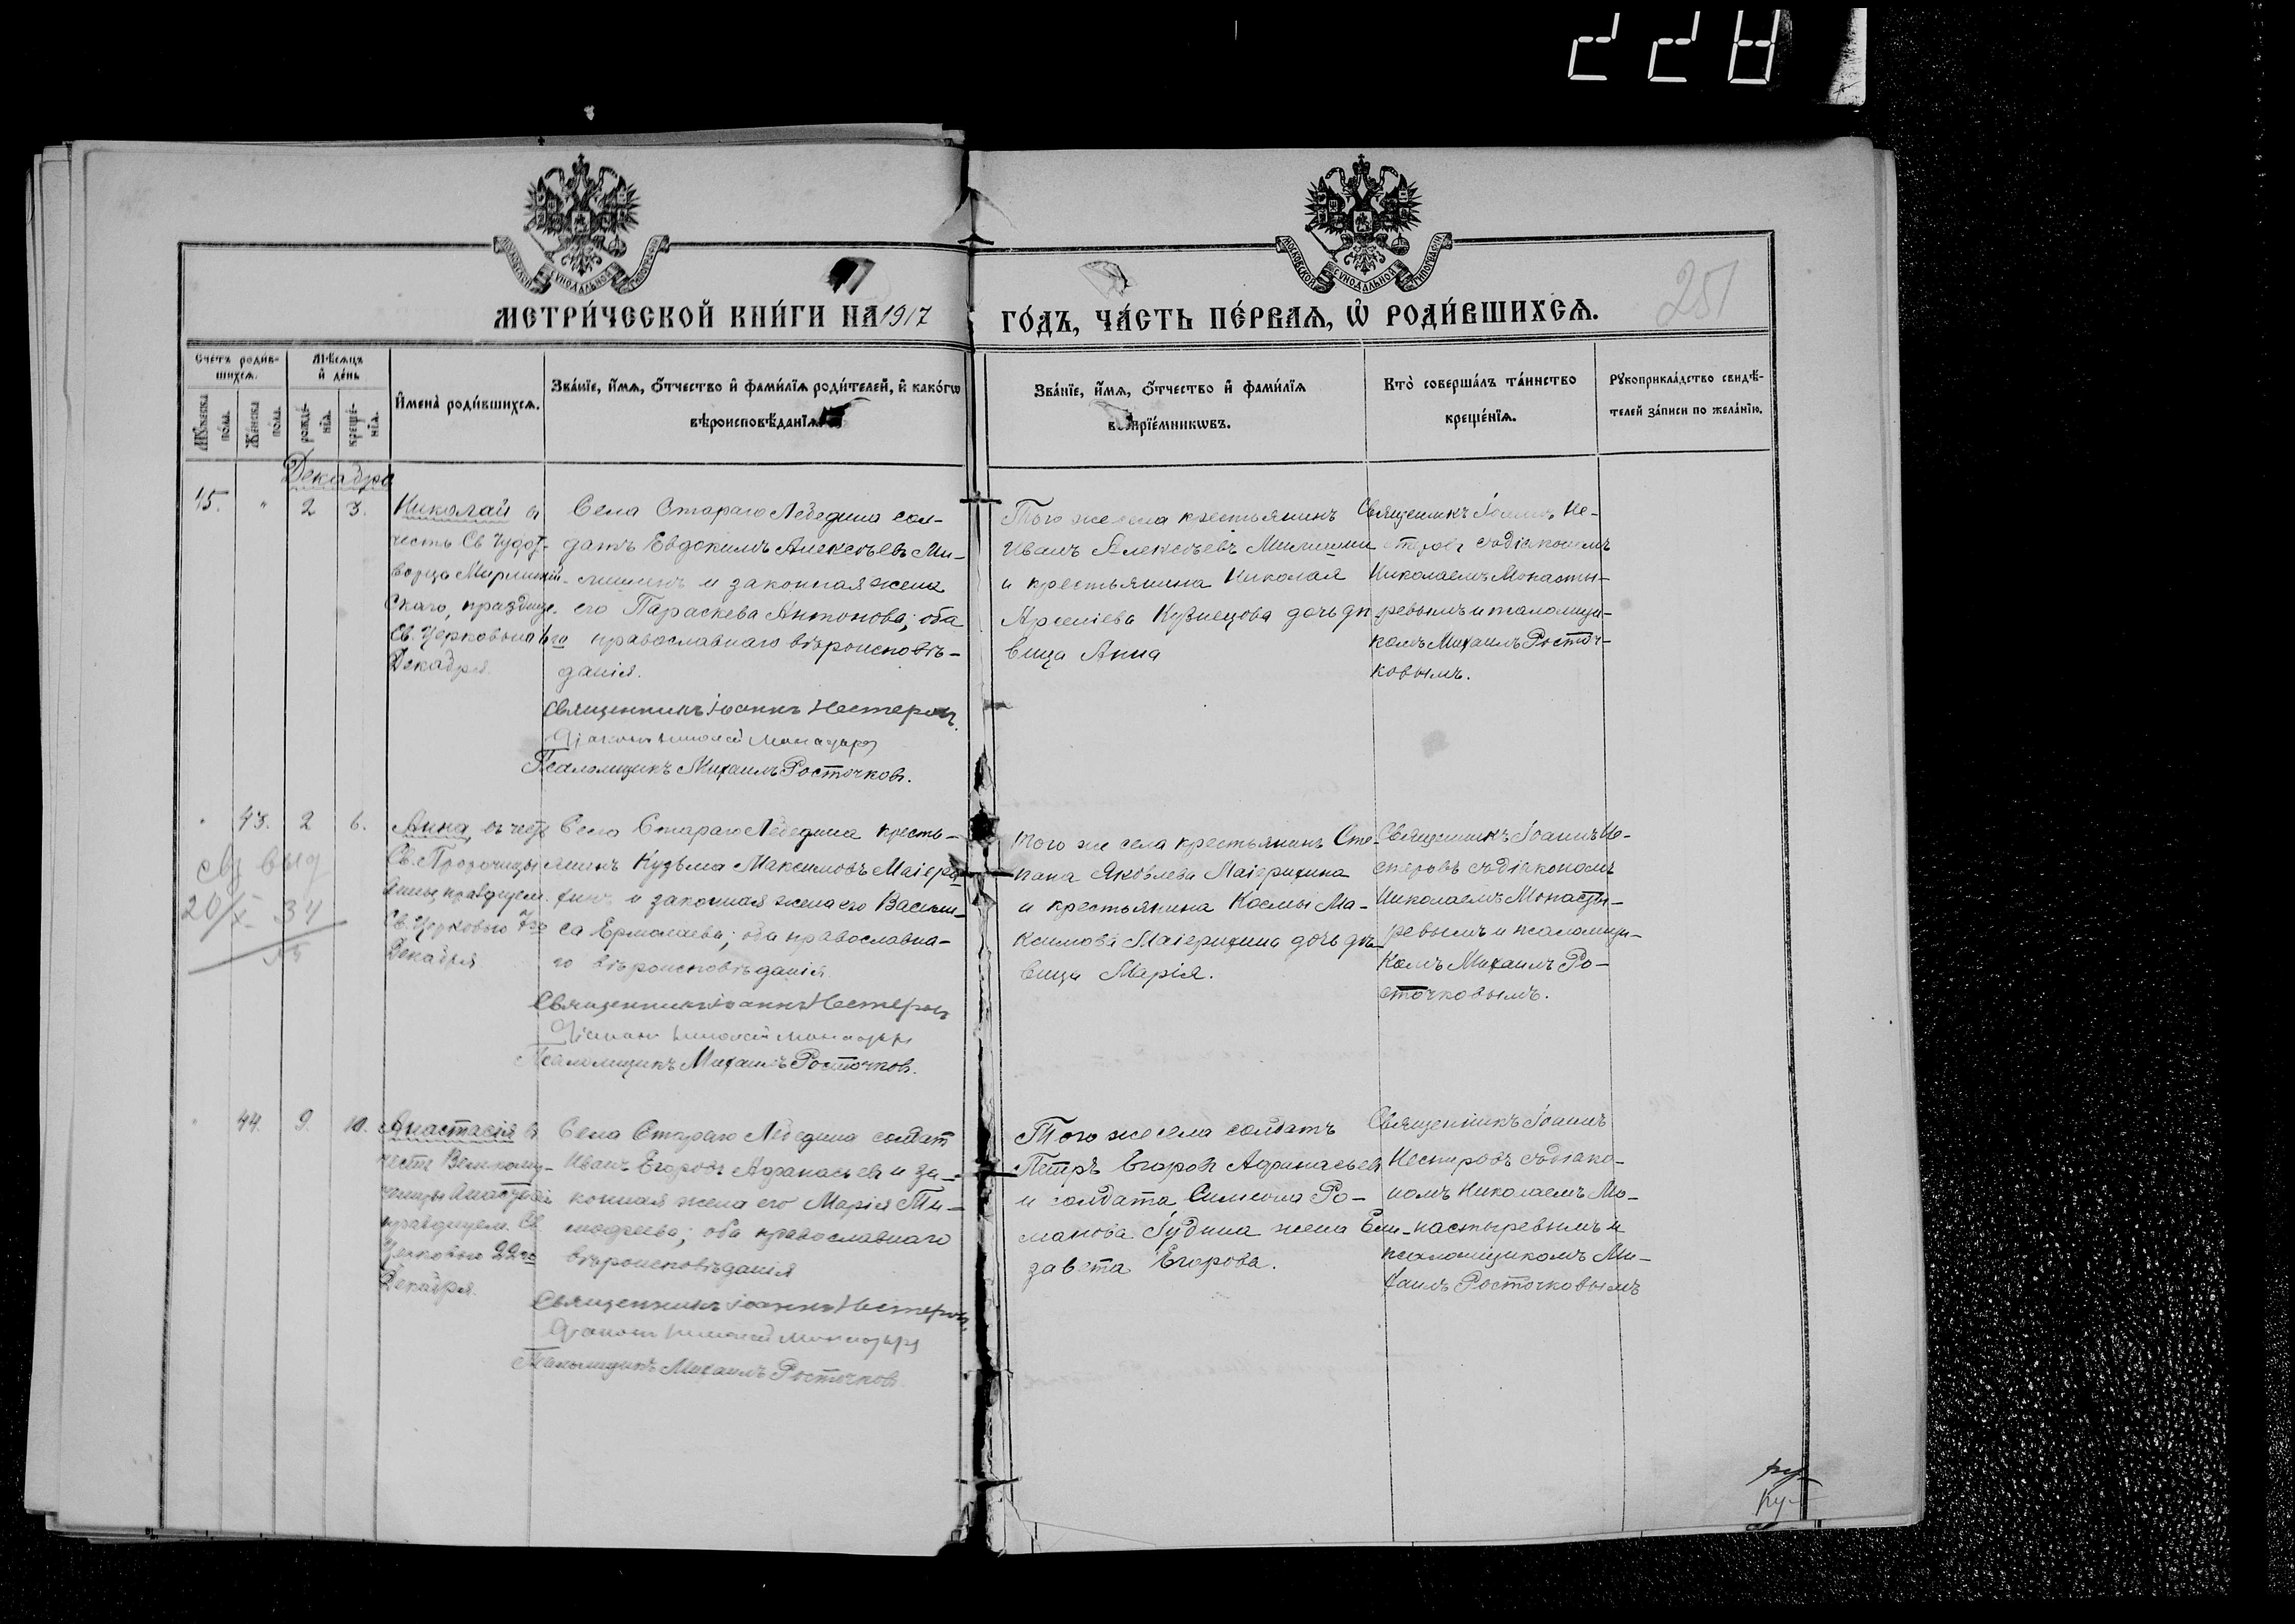 228
251
МОСКОВСКОЙ СѴНОДАЛЬНОЙ ТИПОГРАФІИ
МОСКОВСКОЙ СѴНОДАЛЬНОЙ ТИПОГРАФІИ
МЕТРИ́ЧЕСКОЙ КНИ́ГИ НА 1917
ГО́ДЪ, ЧА́СТЬ ПЕ́РВАЯ, Ѡ РОДИ́ВШИХСЯ.
Сче́тъ роди́в-
шихся.
Мѣ́сяцъ
и҆ де́нь
Му́жеска по́ла.
Же́нска по́ла.
рожде́-
нїѧ.
креще́-
нїѧ.
И҆мена̀ роди́вшихсѧ.
Зва́нїе, и҆́мѧ, ѻ҆́тчество и҆ фами́лїѧ роди́телей, и҆ како́гѡ
вѣроисповѣ́данїѧ.
Зва́нїе, и҆́мѧ, ѻ҆́тчество и҆ фами́лїѧ
воспрїе́мникѡвъ.
Кто̀ соверша́лъ та́инство
креще́нїѧ.
Рꙋкоприкла́дство свидѣ́-
телей за́писи по жела́нїю.
Декабрь
45. " 2 3.
Николай въ
честь Св. Чудот-
ворца Мирликій-
скаго, праздnуе.
Св. Церковью 6го
Декабря.
Села Стараго Лебедина сол-
датъ Евдокимъ Алексѣевъ Ми-
лишинъ и законная жена
его Параскева Антонова; оба
православнаго вѣроисповѣ-
данія.
Священникъ Іоаннъ Нестеровъ.
Діаконъ Николай Монастырев
Псаломщикъ Михаилъ Росточков.
Того же села крестьянинъ
Иванъ Алексѣевъ Милишин
и крестьянина Николая
Арсеніева Кузнецова дочь дѣ
вица Анна
Священникъ Іоаннъ Не-
стеровъ съ діакономъ
Николаемъ Монасты-
ревымъ и псаломщи-
комъ Михаилъ Росточ-
ковымъ.
" 43. 2 6.
20/X 34
Анна, въ честь
Св. Пророчицы
Анны, празднуем.
Св. Церковью 7го
Декабря
Села Стараго Лебедина кресть-
янинъ Кузьма Максимовъ Маіери-
хинъ и законная жена его Васили-
са Ермолаева; оба православна-
го вѣроисповѣданія.
Священникъ Іоаннъ Нестеровъ
Діаконъ Николай Монастырев
Псаломщикъ Михаилъ Росточков.
Того же села крестьянинъ Сте-
пана Яковлева Маіерихина
и крестьянина Космы Ма-
ксимова Маіерихина дочь дѣ-
вица Марія.
Священникъ Іоаннъ Не-
стеровъ съ діакономъ
Николаемъ Монасты-
ревымъ и псаломщи-
комъ Михаилъ Ро-
сточковымъ.
" 44. 9. 10.
Анастасія въ
честь Великому-
ченицы Анастасіи
празднуем. Св.
Церковью 22го
Декабря.
Села Стараго Лебедина солдат
Иванъ Егоровъ Афанасьев и за-
конная жена его Марія Ти-
мофеева; оба православнаго
вѣроисповѣданія
Священникъ Іоаннъ Нестеровъ.
Діаконъ Николай Монастырев
Псаломщикъ Михаилъ Росточков
Того же села солдатъ
Петръ Егоровъ Афанасьевъ
и солдата Симеона Ро-
манова Гудина жена Ели-
завета Егорова.
Священникъ Іоаннъ
Нестеровъ съ діако-
номъ Николаемъ Мо-
настыревымъ и
псаломщикомъ Ми-
хаилъ Росточковымъ